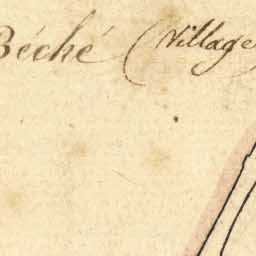 Béché (Village